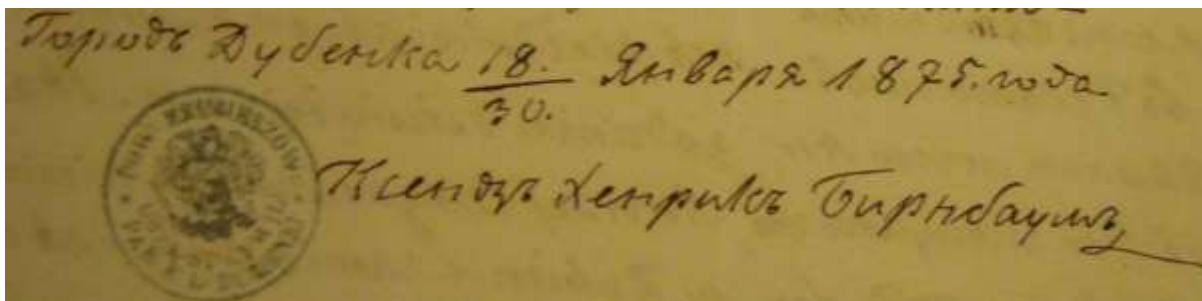 Городъ Дубенка 18./30. Января 1875. года
Ксендзъ Хенрикъ Бирнбаумъ
POW. HRUBIESZOW